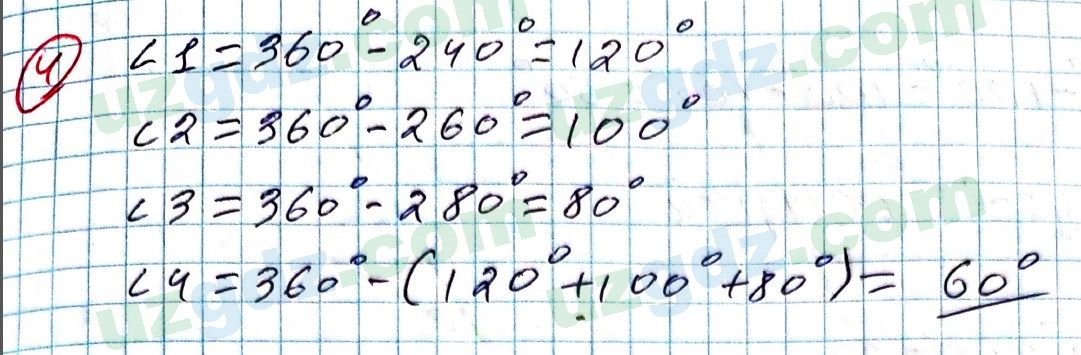 4) ∠1 = 360° - 240° = 120°
∠2 = 360° - 260° = 100°
∠3 = 360° - 280° = 80°
∠4 = 360° - (120° + 100° + 80°) = 60°
uzgdz.com
uzgdz.com
uzgdz.com
uzgdz.com